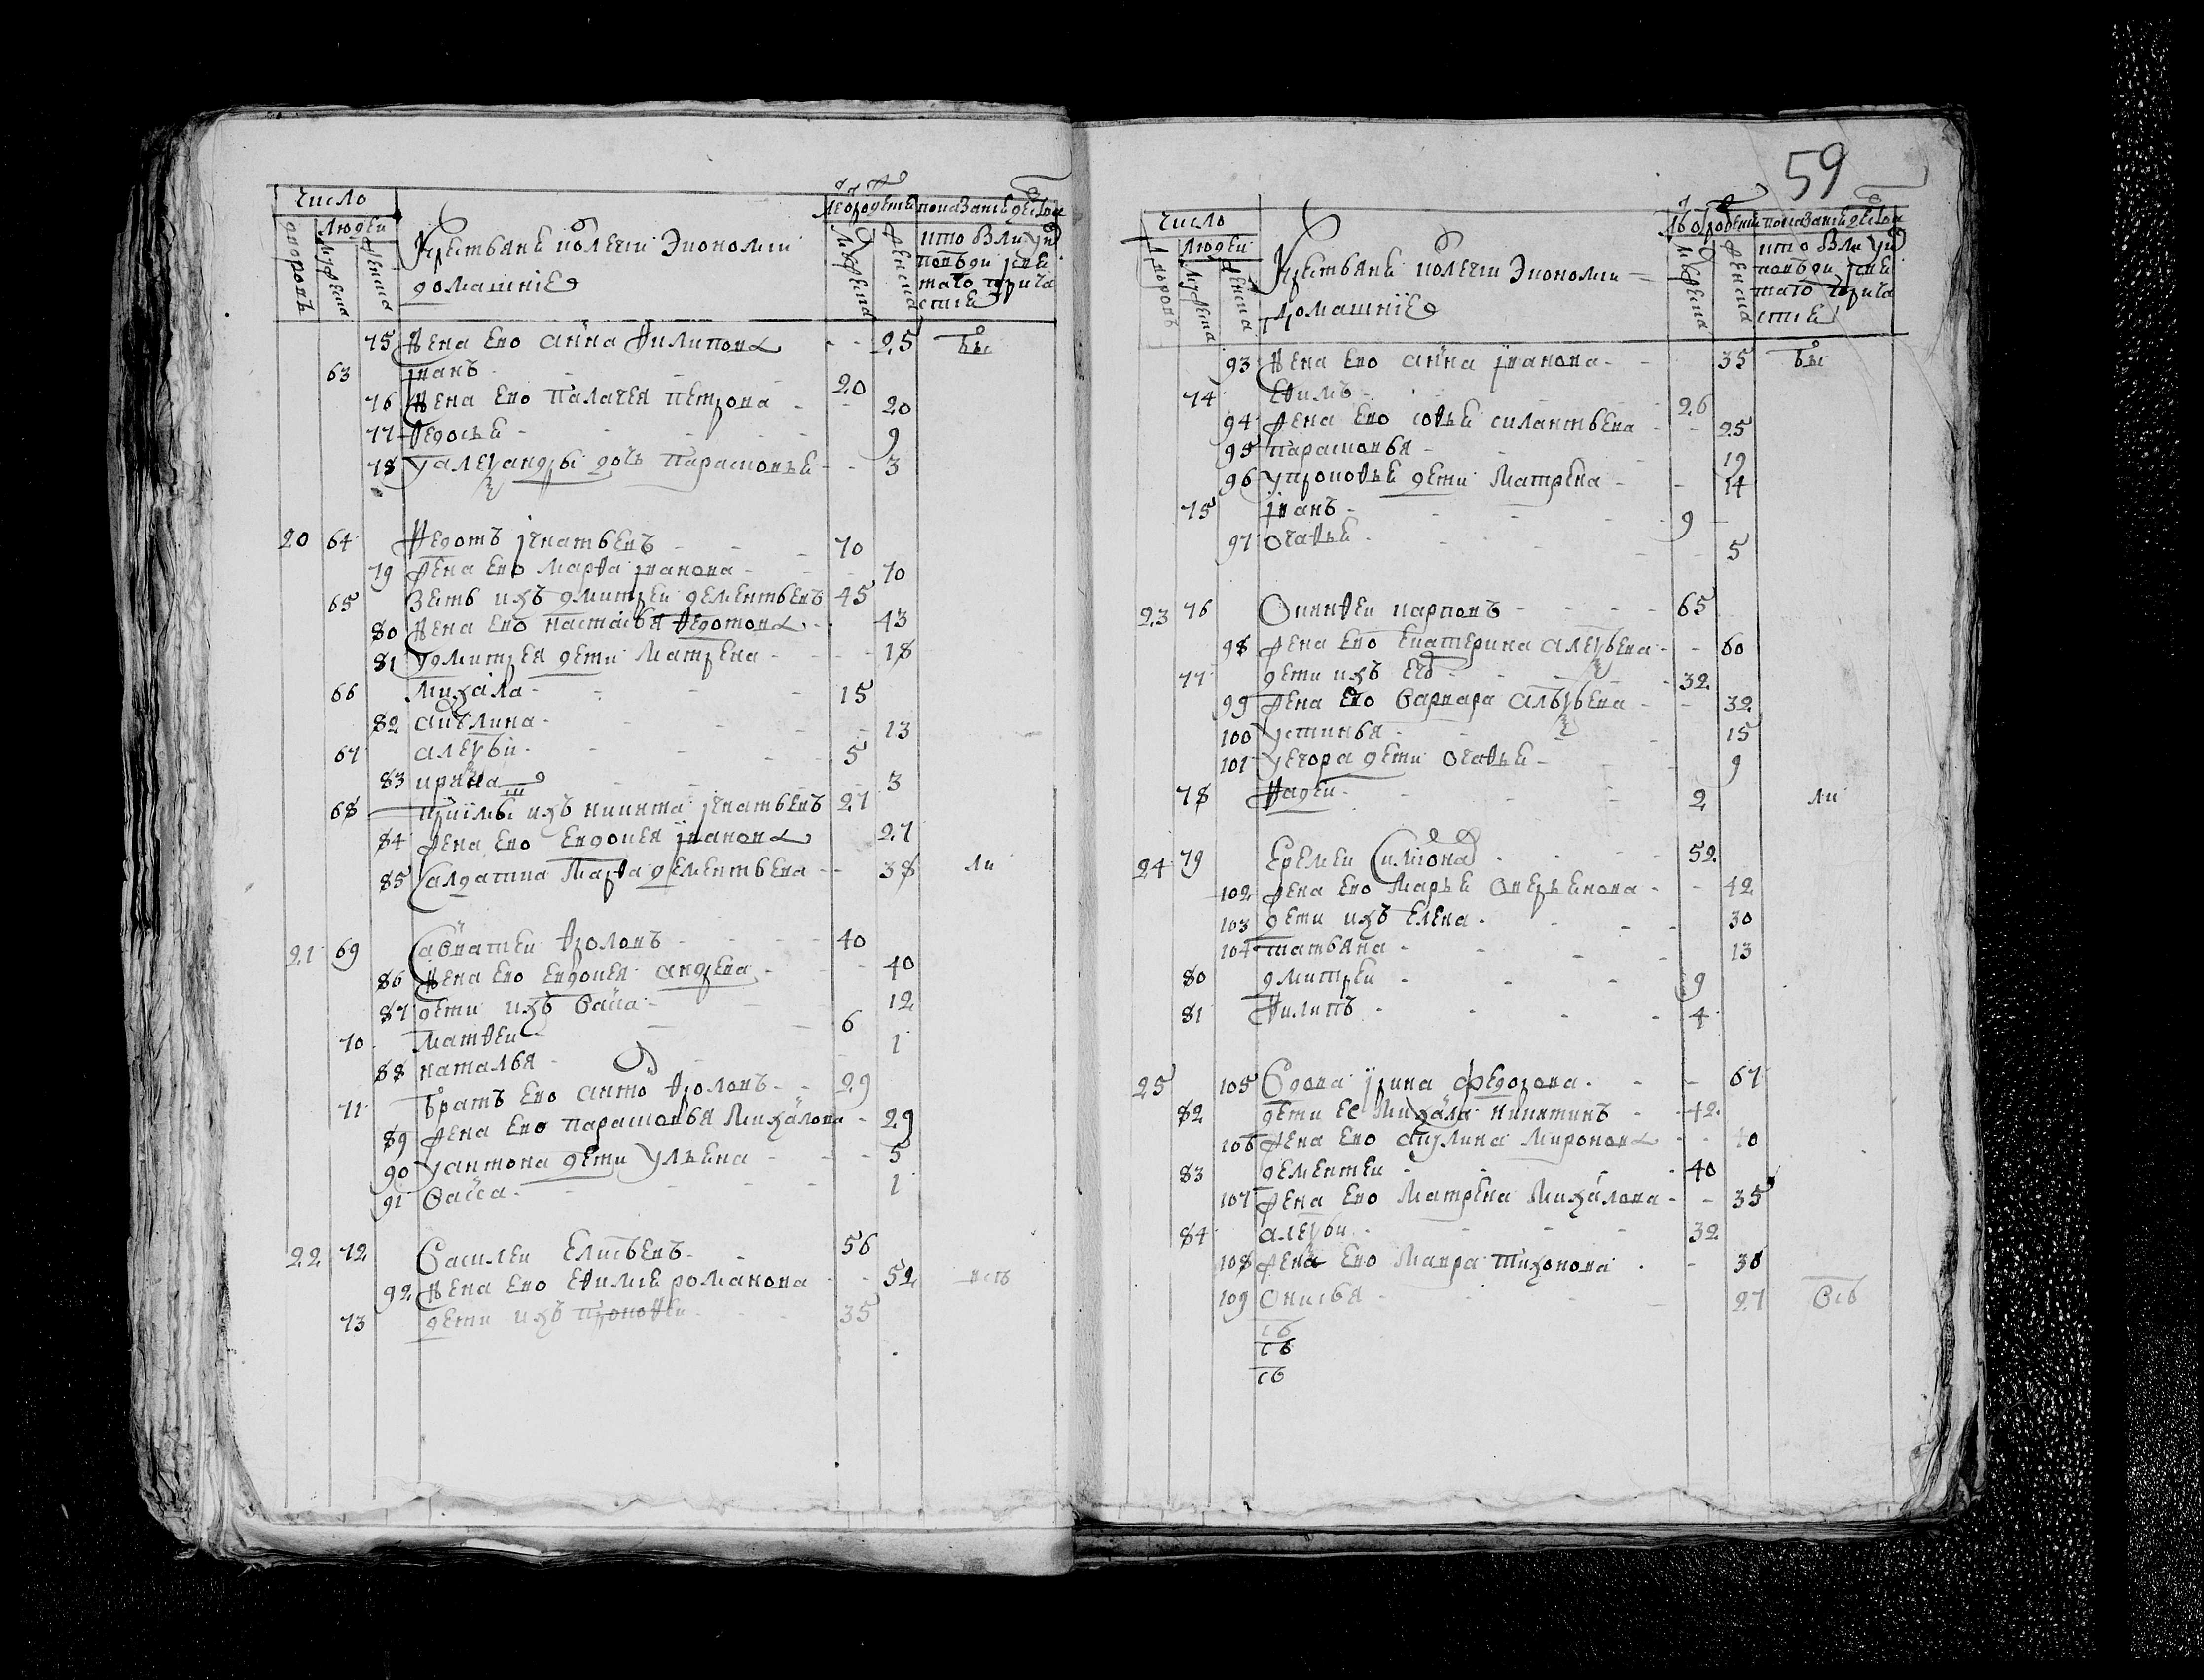 число
дворовъ
людеи
мужеска
женска
крестьяне колегии экономии
домашние
мужеска
женска
показание
кто
75 жена ево анна филипова 25 бы
63 иванъ 20
76 жена ево палагея петрова 20
77 федосья 9
78 у александры дочь парасковья 3
20 64 федотъ игнатьевъ 70
79 жена ево марфа иванова 70
65 зеть ихъ дмитреи дементьевъ 45
80 жена ево настасья федотова 43
81 у дмитрея дети матрена 18
66 михаила 15
82 акулина 13
67 алексеи 5
83 ирина 3
68 приимышъ ихъ никита игнатьевъ 27
84 жена ево евдокея иванова 27
85 салдатка марфа дементьева 38 ли
21 69 савватеи фролов 40
86 жена ево евдокея андреева 40
87 дети ихъ васса 12
70 матфеи 6
88 наталья 1
71 братъ ево антонъ фроловъ 29
89 жена ево парасковья михаилова 29
90 у антона дети ульяна 5
91 васса 1
22 72 василеи елисеевъ 56
92 жена ево ефимия романова 52
73 дети ихъ прокофеи 35
59
число
дворовъ
людеи
мужеска
женска
крестьяне колегии экономии
домашние
мужеска
женска
показание
кто
93 жена ево анна иванова 35 бы
74 ефимъ 26
94 жена ево софья силантьева 25
95 парасковья 19
96 у прокофья дети матрена 14
75 иванъ 9
97 агафья 5
23 76 карповъ 65
98 жена ево екатерина алексеева 60
77 дети ихъ 32
99 жена ево варвара алексеева 32
100 устинья 15
101 у егора дети агафья 9
78 фадеи 2 ли
24 79 еремеи симонов 52
102 жена ево марья 42
103 дети ихъ елена 30
104 татьяна 13
80 дмитреи 9
81 филипъ 4
25 105 вдова ирина федорова 67
82 дети ее михаила никитинъ 42
106 жена ево акулина миронова 40
83 дементеи 40
107 жена ево матрена михаилова 35
84 алексеи 32
108 жена ево мавра тихонова 30
109 анисья 27